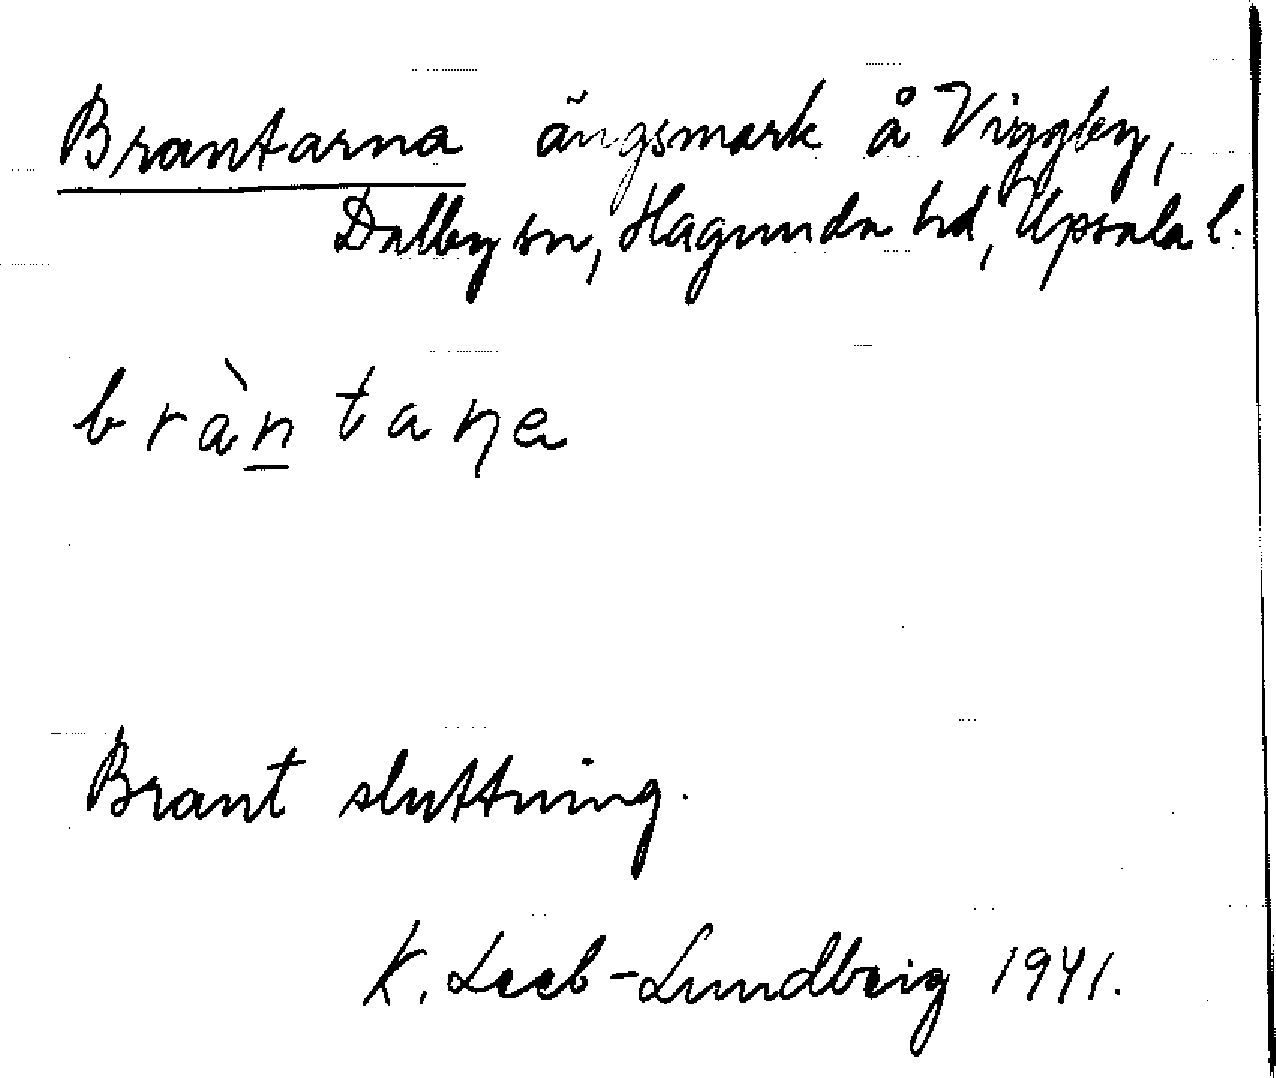 Brantarna ängsmark å Viggby,
Dalby sn, Hagunda hd, Upsala l.
bràn̲taɳa
Brant sluttning.
K. Leeb-Lundberg 1941.